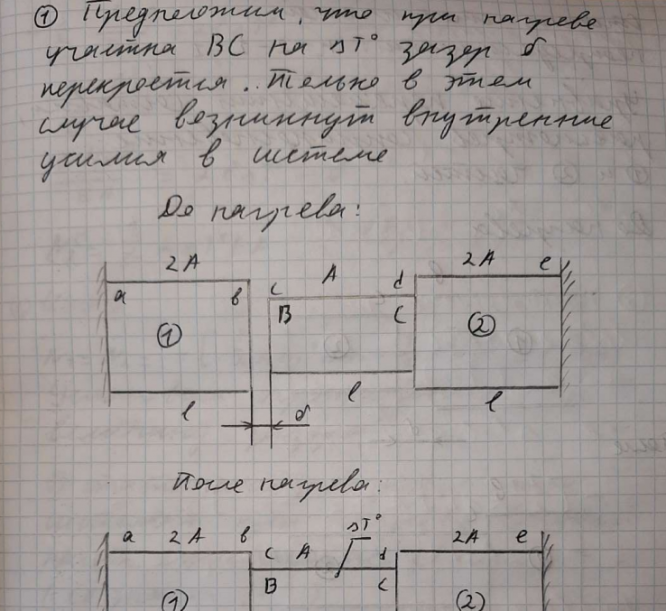 ① Предположим, что при нагреве
участка ВС на ΔT° зазор δ
перекроется. Только в этом
случае возникнут внутренние
усилия в системе
До нагрева:
2A A 2A
a в c d e
B C
① ②
l l l
δ
После нагрева:
a 2A в c A ΔT° d 2A e
B C
① ②